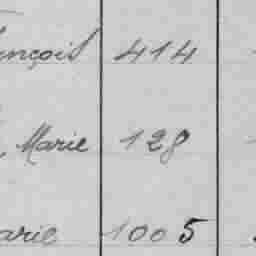 ançois 414
Marie 128
arie 1005